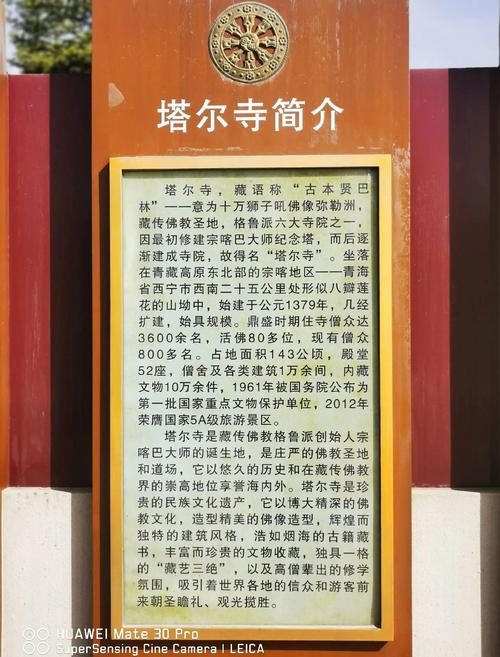 塔尔寺简介
塔尔寺，藏语称“古本贤巴
林”——意为十万狮子吼佛像弥勒洲，
藏传佛教圣地，格鲁派六大寺院之一，
因最初修建宗喀巴大师纪念塔，而后逐
渐建成寺院，故得名“塔尔寺”。坐落
在青藏高原东北部的宗喀地区——青海
省西宁市西南二十五公里处形似八瓣莲
花的山坳中，始建于公元1379年，几经
扩建，始具规模。鼎盛时期住寺僧众达
3600余名，活佛80多位，现有僧众
800多名。占地面积143公顷，殿堂
52座，僧舍及各类建筑1万余间，内藏
文物10万余件，1961年被国务院公布为
第一批国家重点文物保护单位，2012年
荣膺国家5A级旅游景区。
塔尔寺是藏传佛教格鲁派创始人宗
喀巴大师的诞生地，是庄严的佛教圣地
和道场，它以悠久的历史和在藏传佛教
界的崇高地位享誉海内外。塔尔寺是珍
贵的民族文化遗产，它以博大精深的佛
教文化，造型精美的佛像造型，辉煌而
独特的建筑风格，浩如烟海的古籍藏
书，丰富而珍贵的文物收藏，独具一格
的“藏艺三绝”，以及高僧辈出的修学
氛围，吸引着世界各地的信众和游客前
来朝圣瞻礼、观光揽胜。
HUAWEI Mate 30 Pro
SuperSensing Cine Camera | LEICA